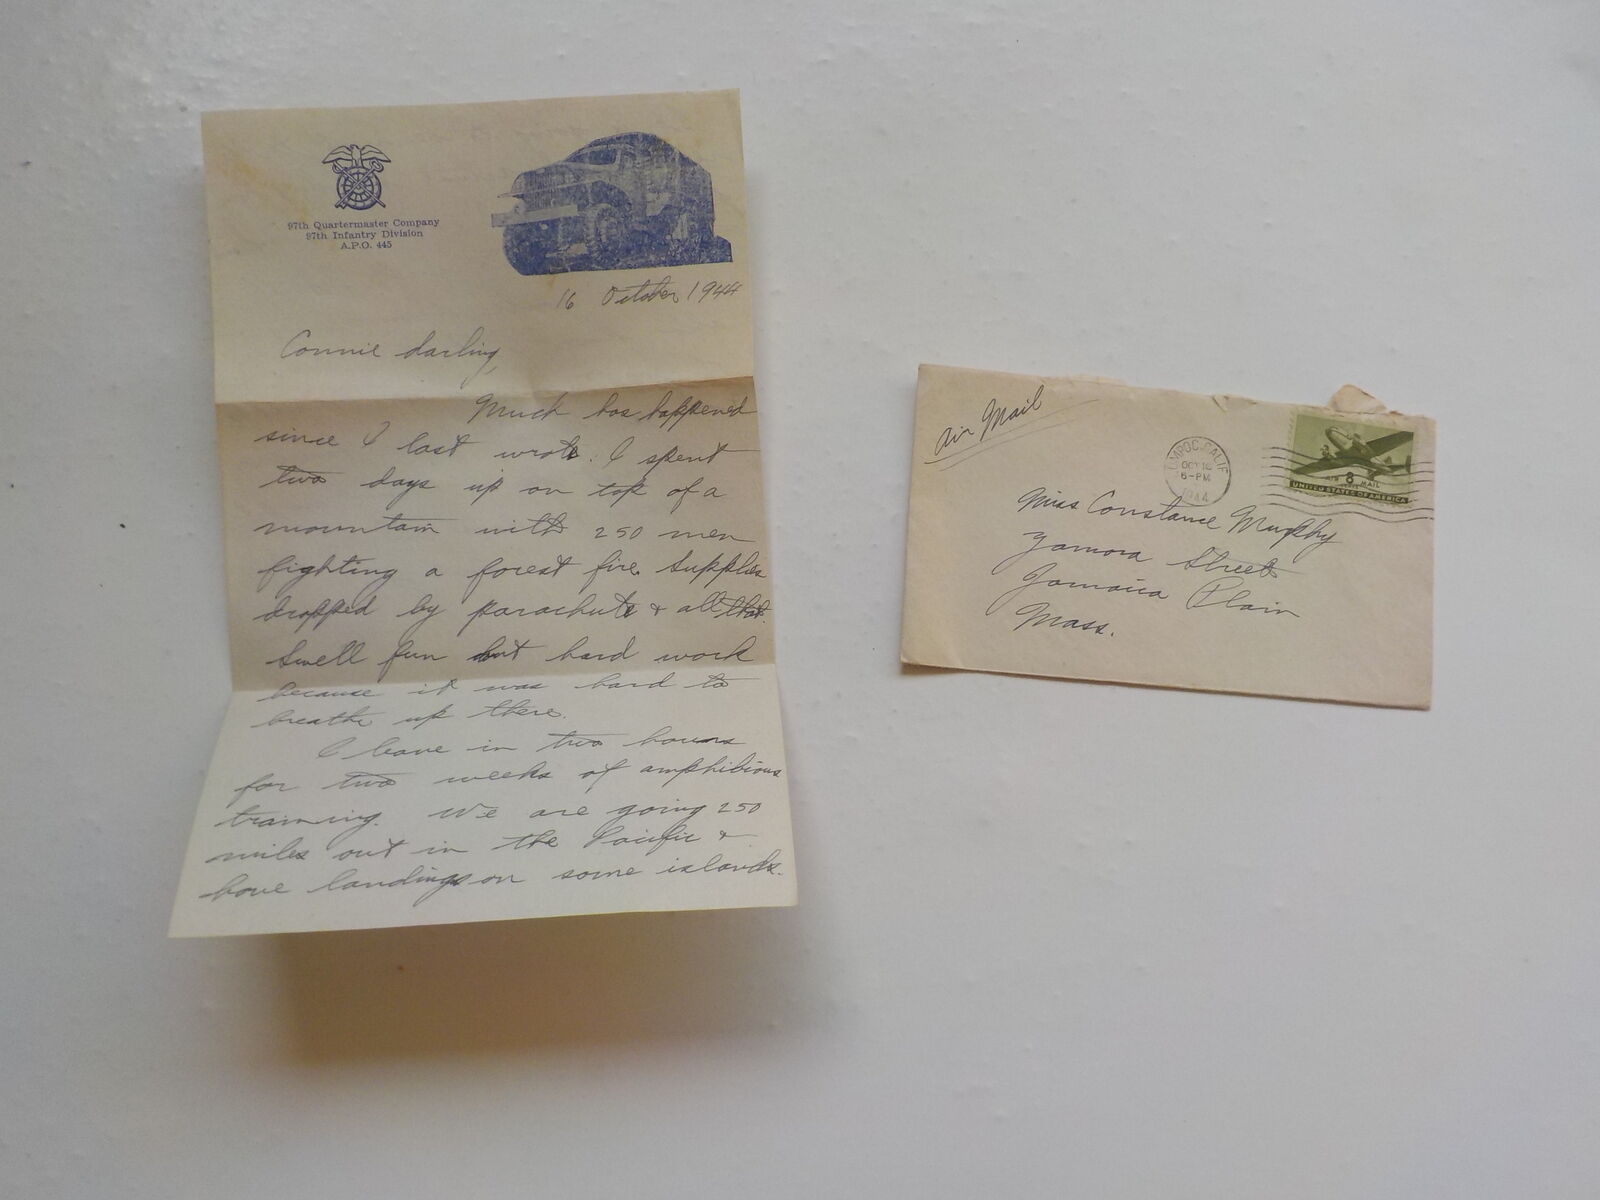 97th Quartermaster Company
97th Infantry Division
A.P.O. 445
16 October 1944
Connie darling,
Much has happened
since I last wrote. I spent
two days up on top of a
mountain with 250 men
fighting a forest fire. Supplies
dropped by parachute & all that.
Swell fun but hard work
because it was hard to
breathe up there.
I leave in two hours
for two weeks of amphibious
training. We are going 250
miles out in the Pacific &
have landings on some islands.
Air Mail
LOMPOC, CALIF.
OCT 16
6-PM
1944
AIR 8 MAIL
CENTS
UNITED STATES OF AMERICA
Miss Constance Murphy
Zamora Street
Jamaica Plain
Mass.